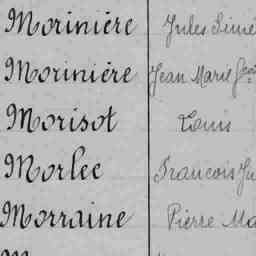 Morinière Jules Simé
Morinière Jean Marie
Morisot Louis
Morlec Francois
Morraine Pierre Ma